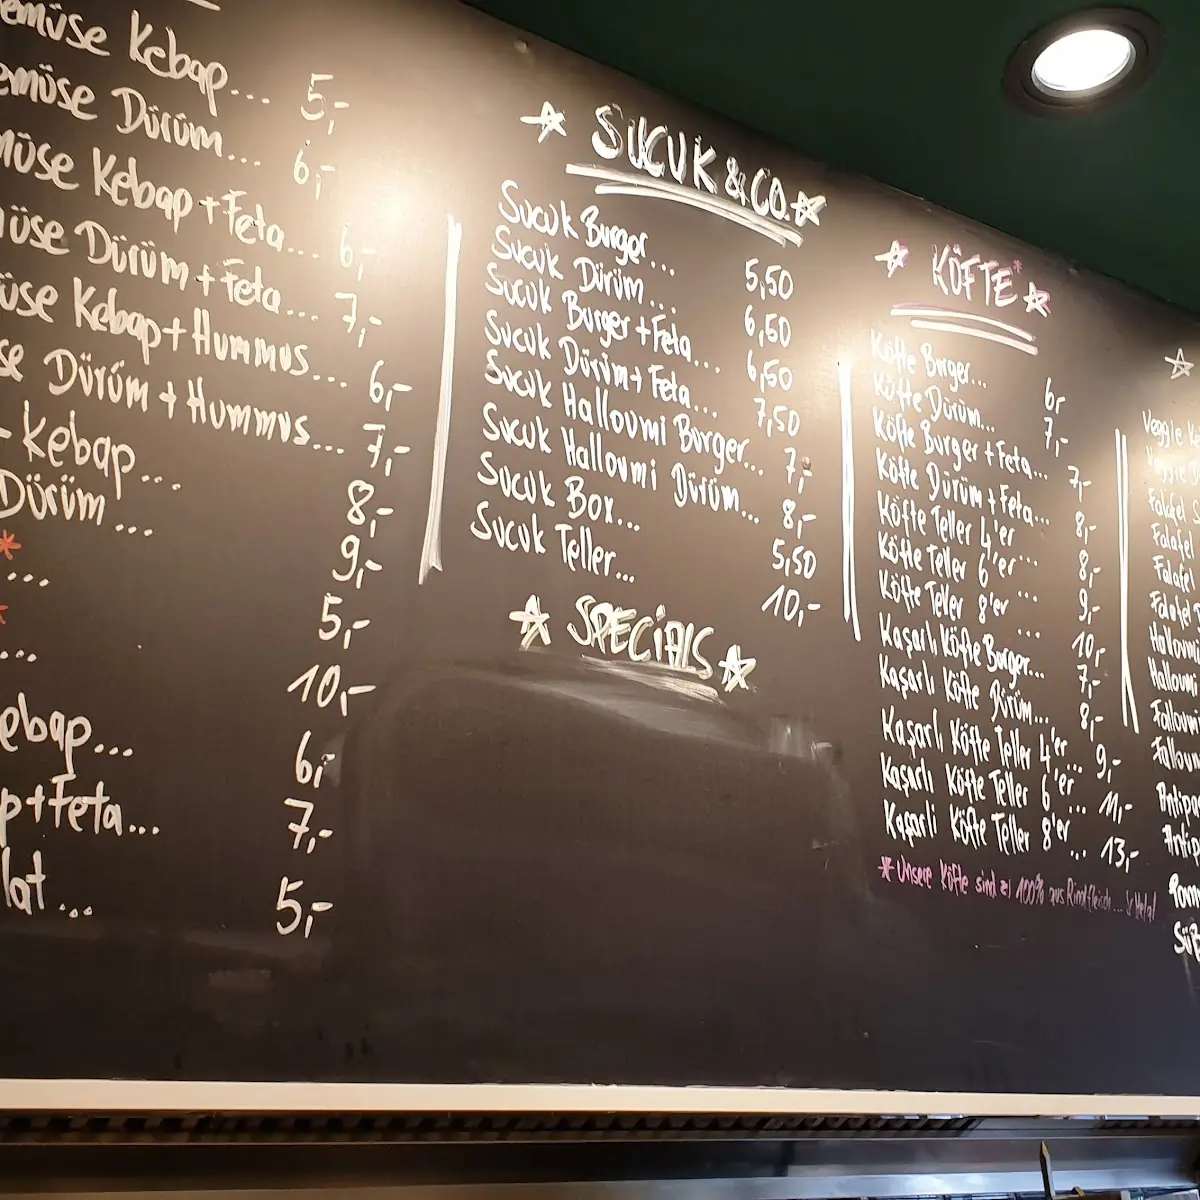 emüse Kebap... 5,-
emüse Dürüm... 6,-
müse Kebap + Feta... 6,-
müse Dürüm + Feta... 7,-
üse Kebap + Hummus... 6,-
se Dürüm + Hummus... 7,-
- Kebap... 8,-
Dürüm... 9,-
*... 5,-
*... 10,-
ebap... 6,-
p + Feta... 7,-
lat... 5,-
☆ SUCUK & CO. ☆
Sucuk Burger... 5,50
Sucuk Dürüm... 6,50
Sucuk Burger + Feta... 6,50
Sucuk Dürüm + Feta... 7,50
Sucuk Halloumi Burger... 7,-
Sucuk Halloumi Dürüm... 8,-
Sucuk Box... 5,50
Sucuk Teller... 10,-
☆ SPECiALS ☆
☆ KÖFTE* ☆
Köfte Burger... 6,-
Köfte Dürüm... 7,-
Köfte Burger + Feta... 7,-
Köfte Dürüm + Feta... 8,-
Köfte Teller 4'er ... 8,-
Köfte Teller 6'er ... 9,-
Köfte Teller 8'er ... 10,-
Kaşarlı Köfte Burger... 7,-
Kaşarlı Köfte Dürüm... 8,-
Kaşarlı Köfte Teller 4'er... 9,-
Kaşarlı Köfte Teller 6'er... 11,-
Kaşarli Köfte Teller 8'er... 13,-
*Unsere Köfte sind zu 100% aus Rindfleisch... & Helal
☆
Veggie K
Veggie
Falafel
Falafel
Falafel
Falafel
Halloumi
Halloumi
Falloumi
Falloum
Antipas
Antip
Pomm
Süß